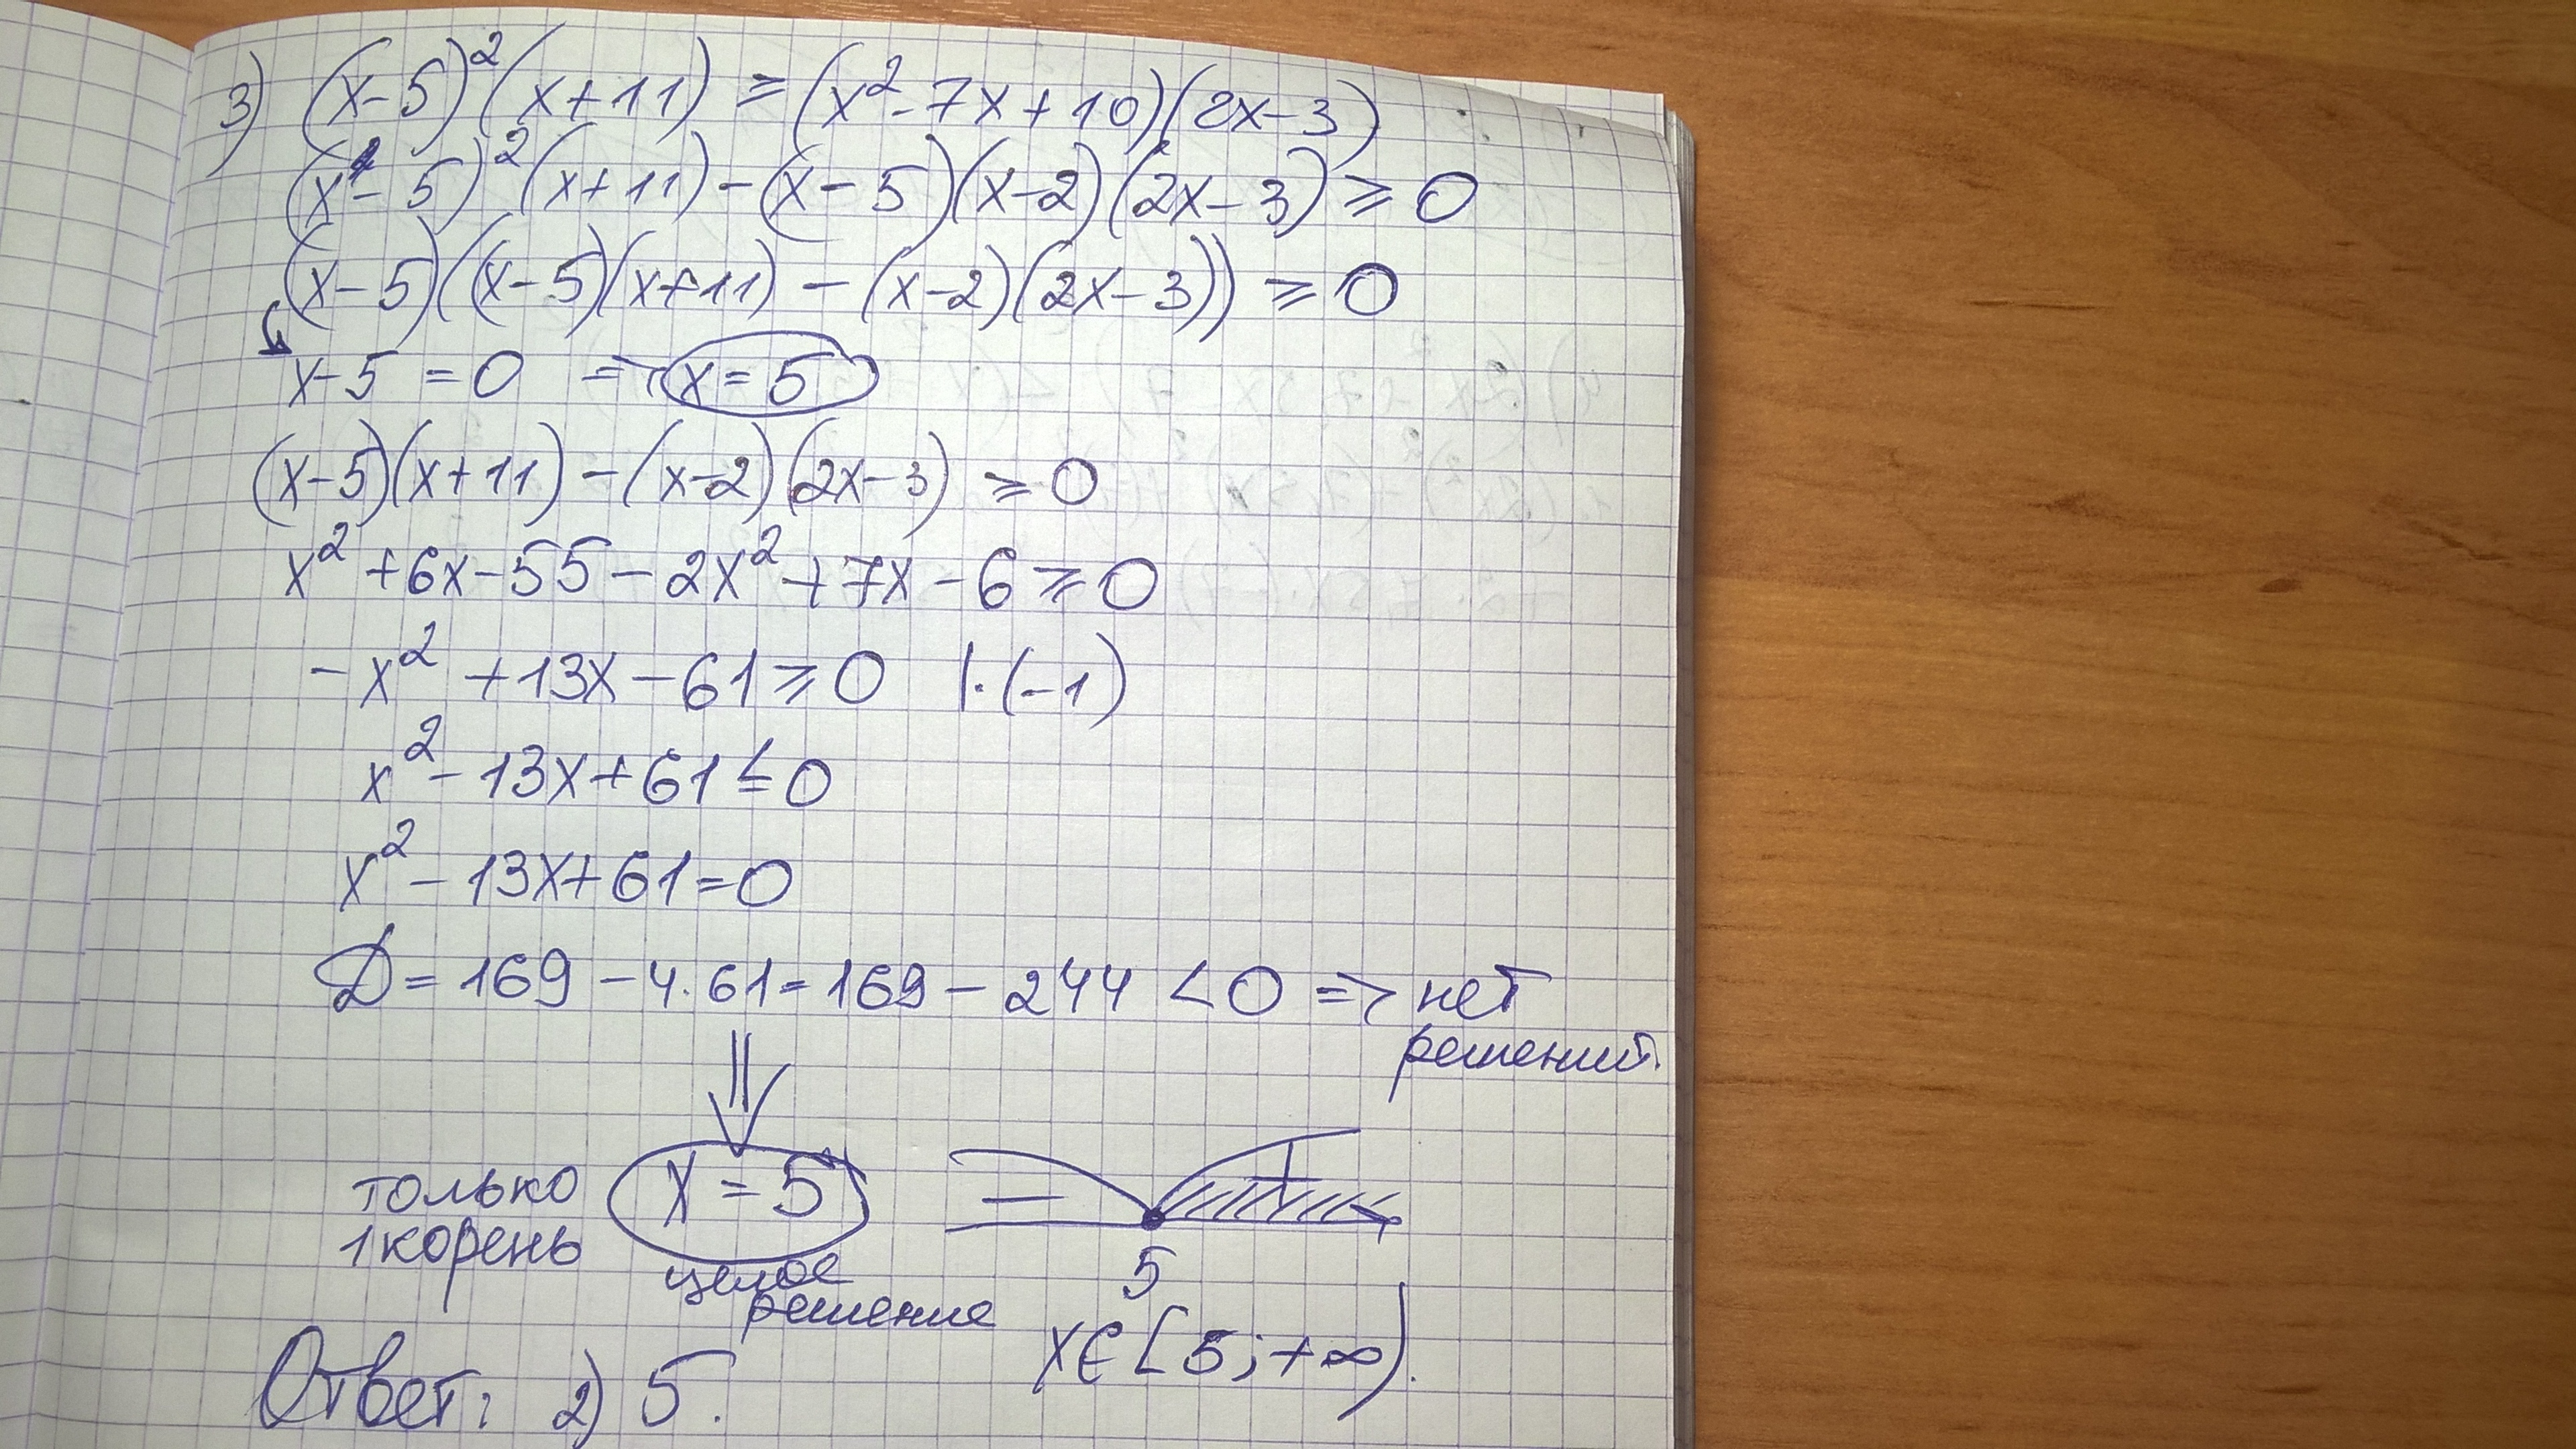 3) (x-5)²(x+11) ≥ (x²-7x+10)(2x-3)
(x-5)²(x+11)-(x-5)(x-2)(2x-3) ≥ 0
(x-5)((x-5)(x+11)-(x-2)(2x-3)) ≥ 0
x-5=0 => x=5
(x-5)(x+11)-(x-2)(2x-3) ≥ 0
x²+6x-55-2x²+7x-6 ≥ 0
-x²+13x-61 ≥ 0 |·(-1)
x²-13x+61 ≤ 0
x²-13x+61=0
Д=169-4·61=169-244 <0 => нет
решений.
только
1 корень
x=5
целое
решение
- +
5
x∈[5;+∞).
Ответ: 2) 5.